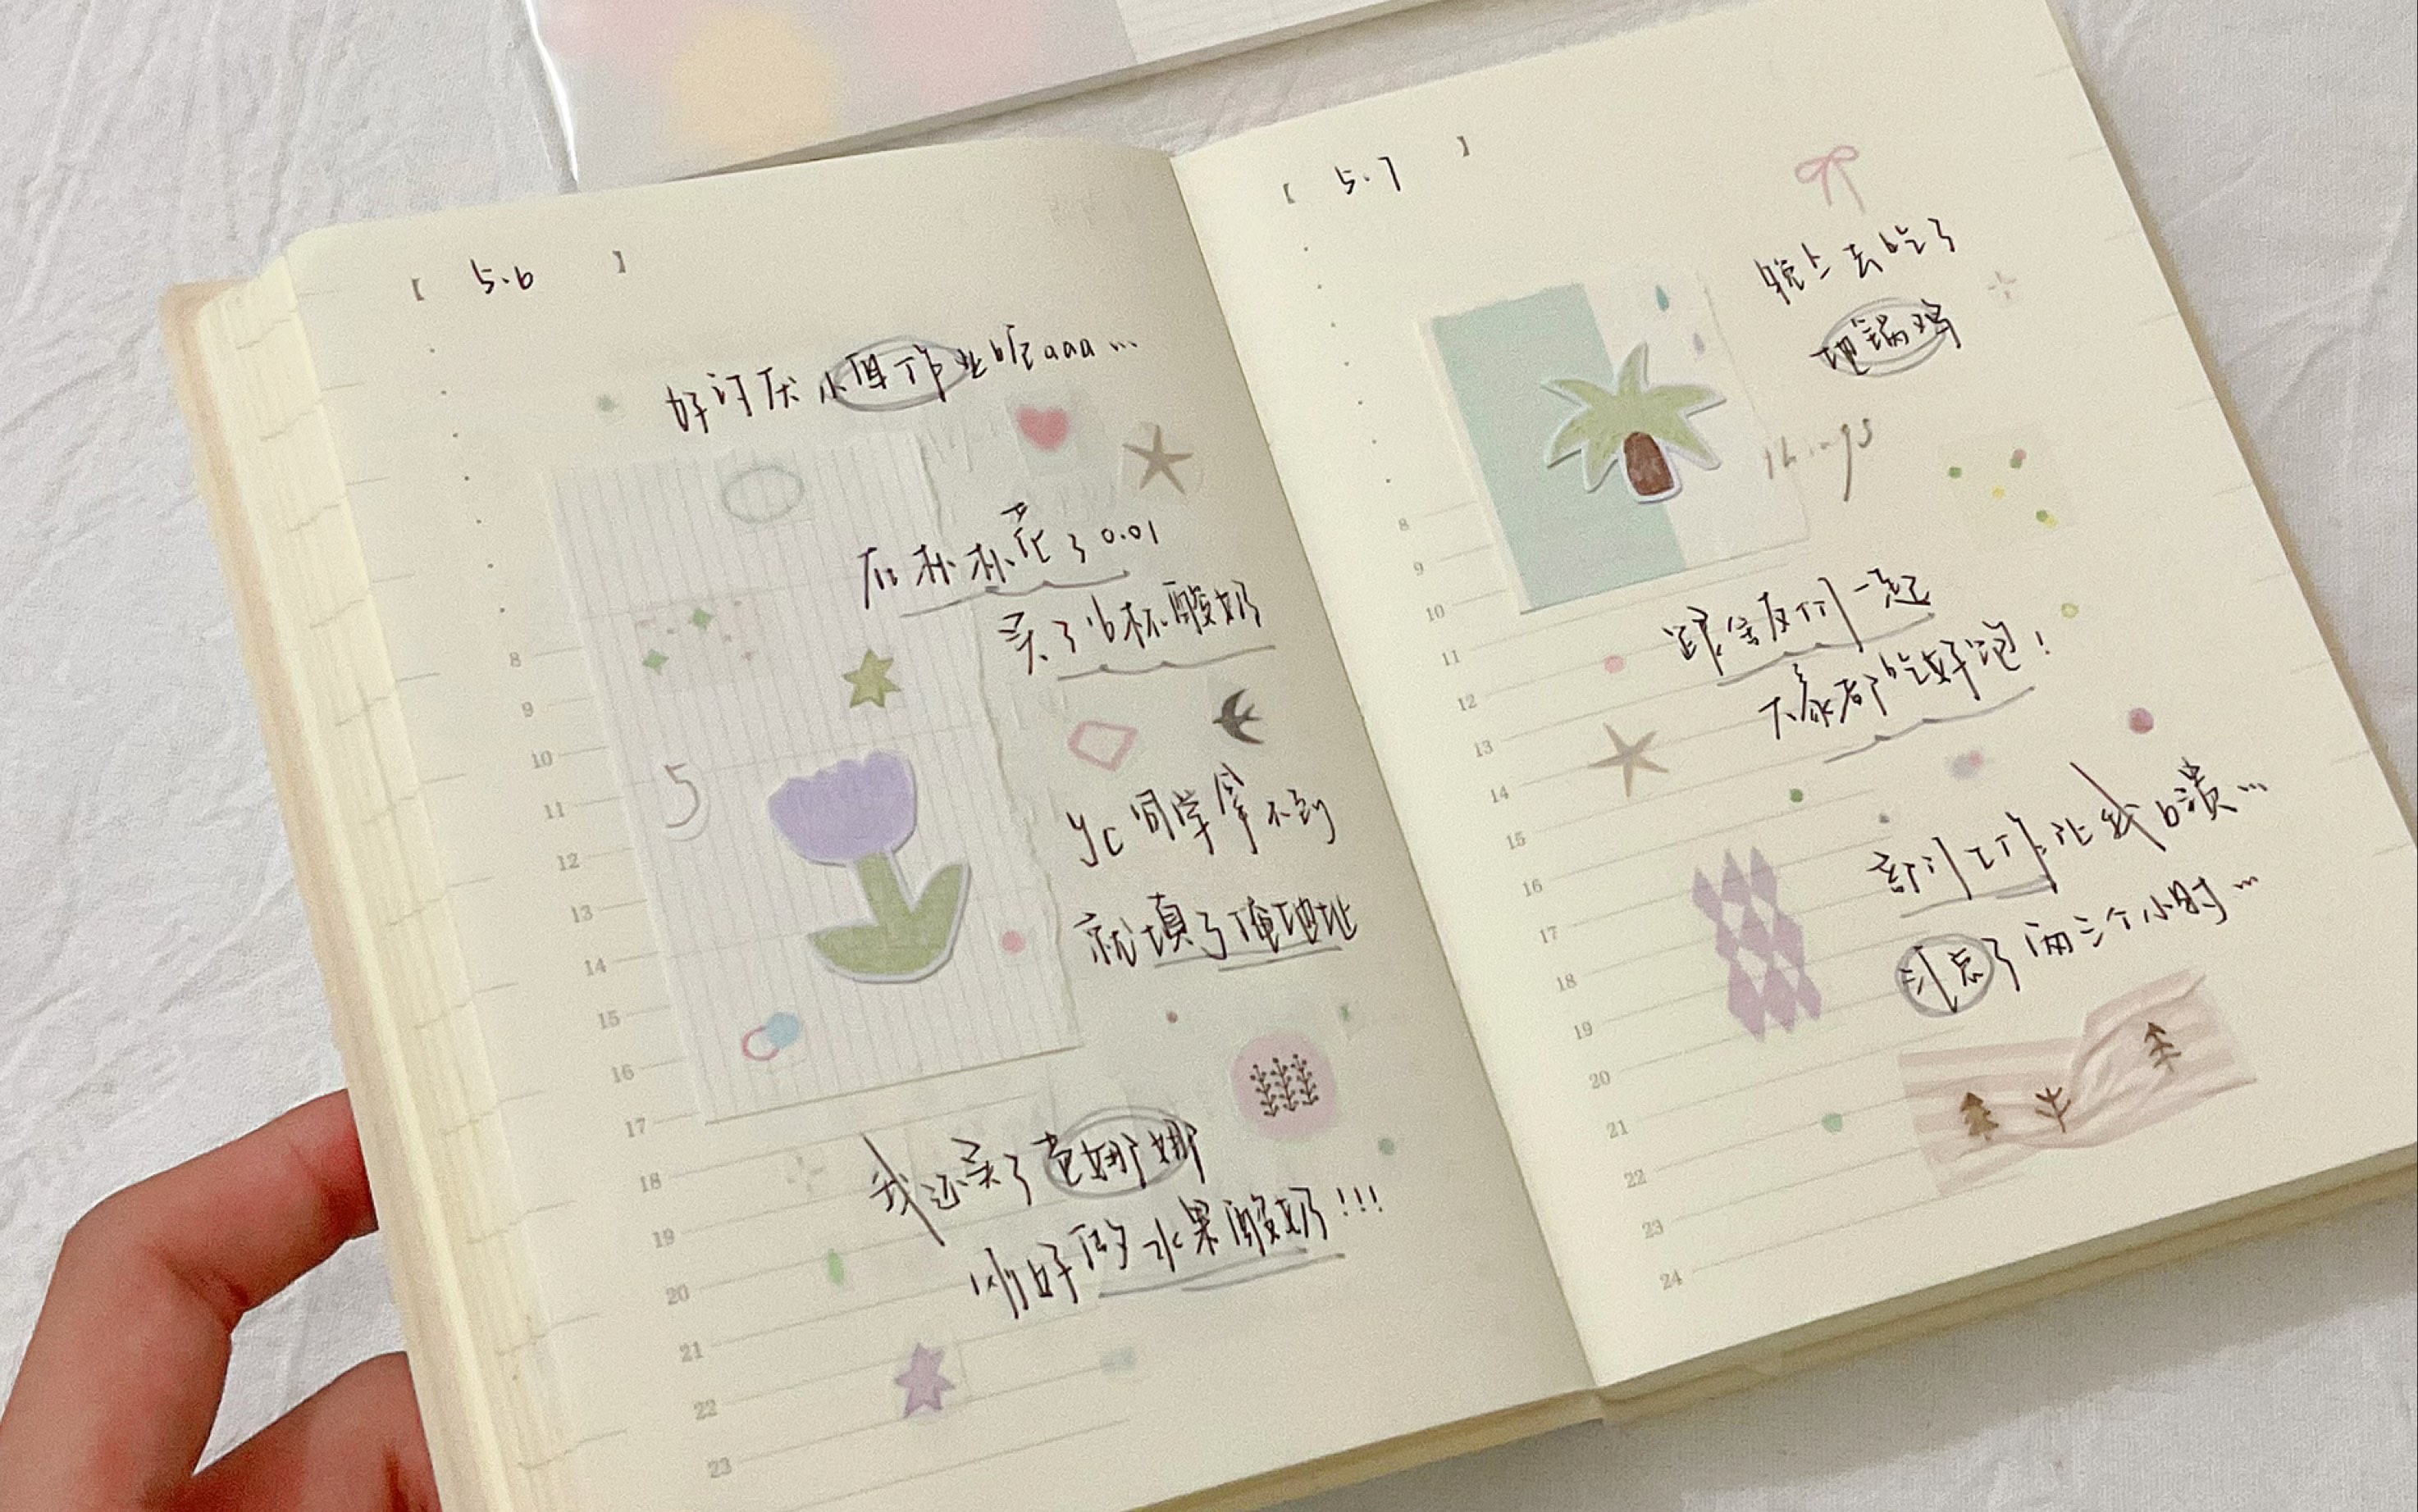 【 5.6 】
好讨厌小组作业呢aaa...
在朴朴花了0.01
买了16杯酸奶
yc同学拿不到
就填了俺地址
我还买了芭娜娜
刚好的水果酸奶!!!
5
8
9
10
11
12
13
14
15
16
17
18
19
20
21
22
23
【 5.7 】
晚上去吃了
地锅鸡
things
跟室友们一起
大家都吃好饱!
部门工作让我崩溃...
讨忘了两三个小时...
8
9
10
11
12
13
14
15
16
17
18
19
20
21
22
23
24